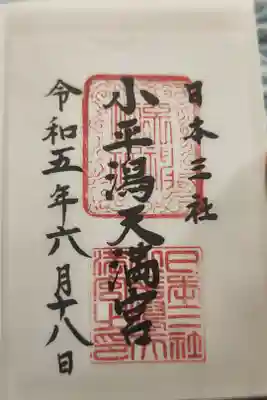 日本三社
小平潟天満宮
令和五年六月十八日